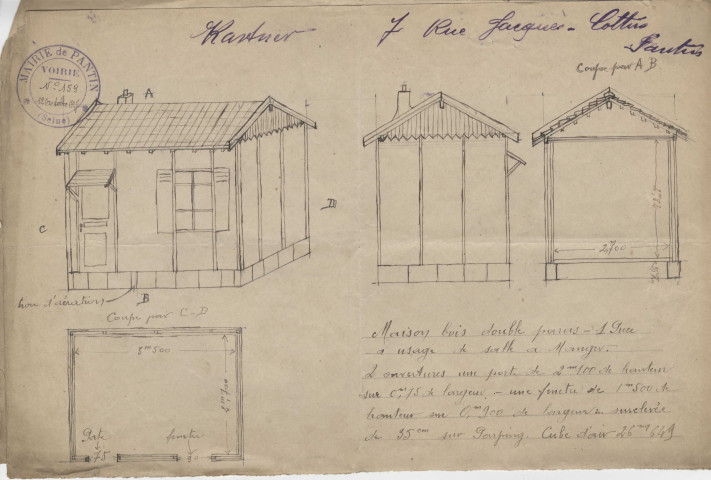 Kastner
7 Rue Jacques-Cottin
Pantin
MAIRIE de PANTIN
VOIRIE
N° 159
(Seine)
Coupe par A B
A
C
D
B
trou d'aération
Coupe par C-D
2,700
8m 500
2m 700
Porte
fenêtre
75
90
Maison bois double parois - 1 Pièce
a usage de salle a Manger.
2 ouvertures une porte de 2m 100 de hauteur
sur 0m,75 de largeur, - une fenêtre de 1m 500 de
hauteur sur 0,m900 de largeur
de 35cm sur Parpaing. Cube d'air 26 mq 649